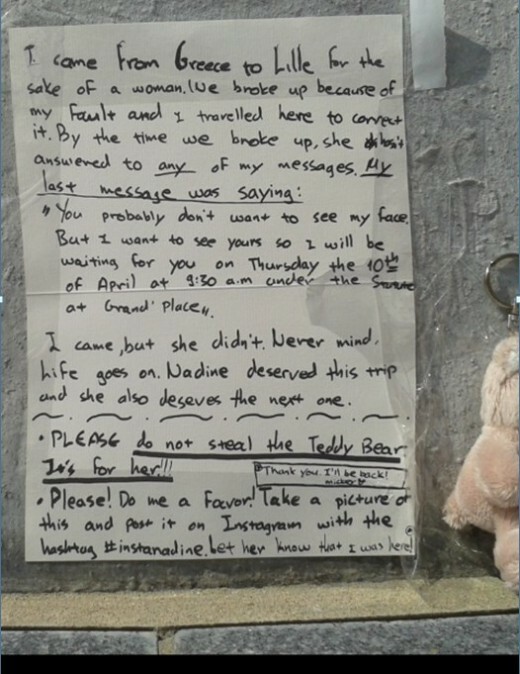 I came from Greece to Lille for the
sake of a woman. We broke up because of
my fault and I travelled here to correct
it. By the time we broke up, she hasn't
answered to any of my messages. My
last message was saying:
"You probably don't want to see my face.
But I want to see yours so I will be
waiting for you on Thursday the 10th
of April at 9:30 a.m under the
at Grand' Place".
I came, but she didn't. Never mind.
Life goes on. Nadine deserved this trip
and she also deseves the next one.
• PLEASE do not steal the Teddy Bear
It's for her!!!
Thank you. I'll be back!
• Please! Do me a Favor! Take a picture of
this and post it on Instagram with the
hashtag #instanadine. Let her know that I was here!